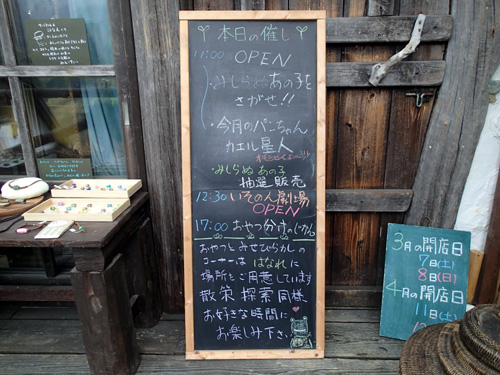 本日の催し
11:00 OPEN
・みしらぬあの子を
さがせ!!
・今月のパンちゃん
カエル星人
・みしらぬあの子
抽選販売
12:30 いそのん劇場
OPEN
17:00 おやつ分けのじかん
おやつとみせびらかしの
コーナーは はなれに
場所をご用意しています
散策探索同様
お好きな時間に
お楽しみ下さい
3月の開店日
7日(土)
8日(日)
4月の開店日
11日(土)